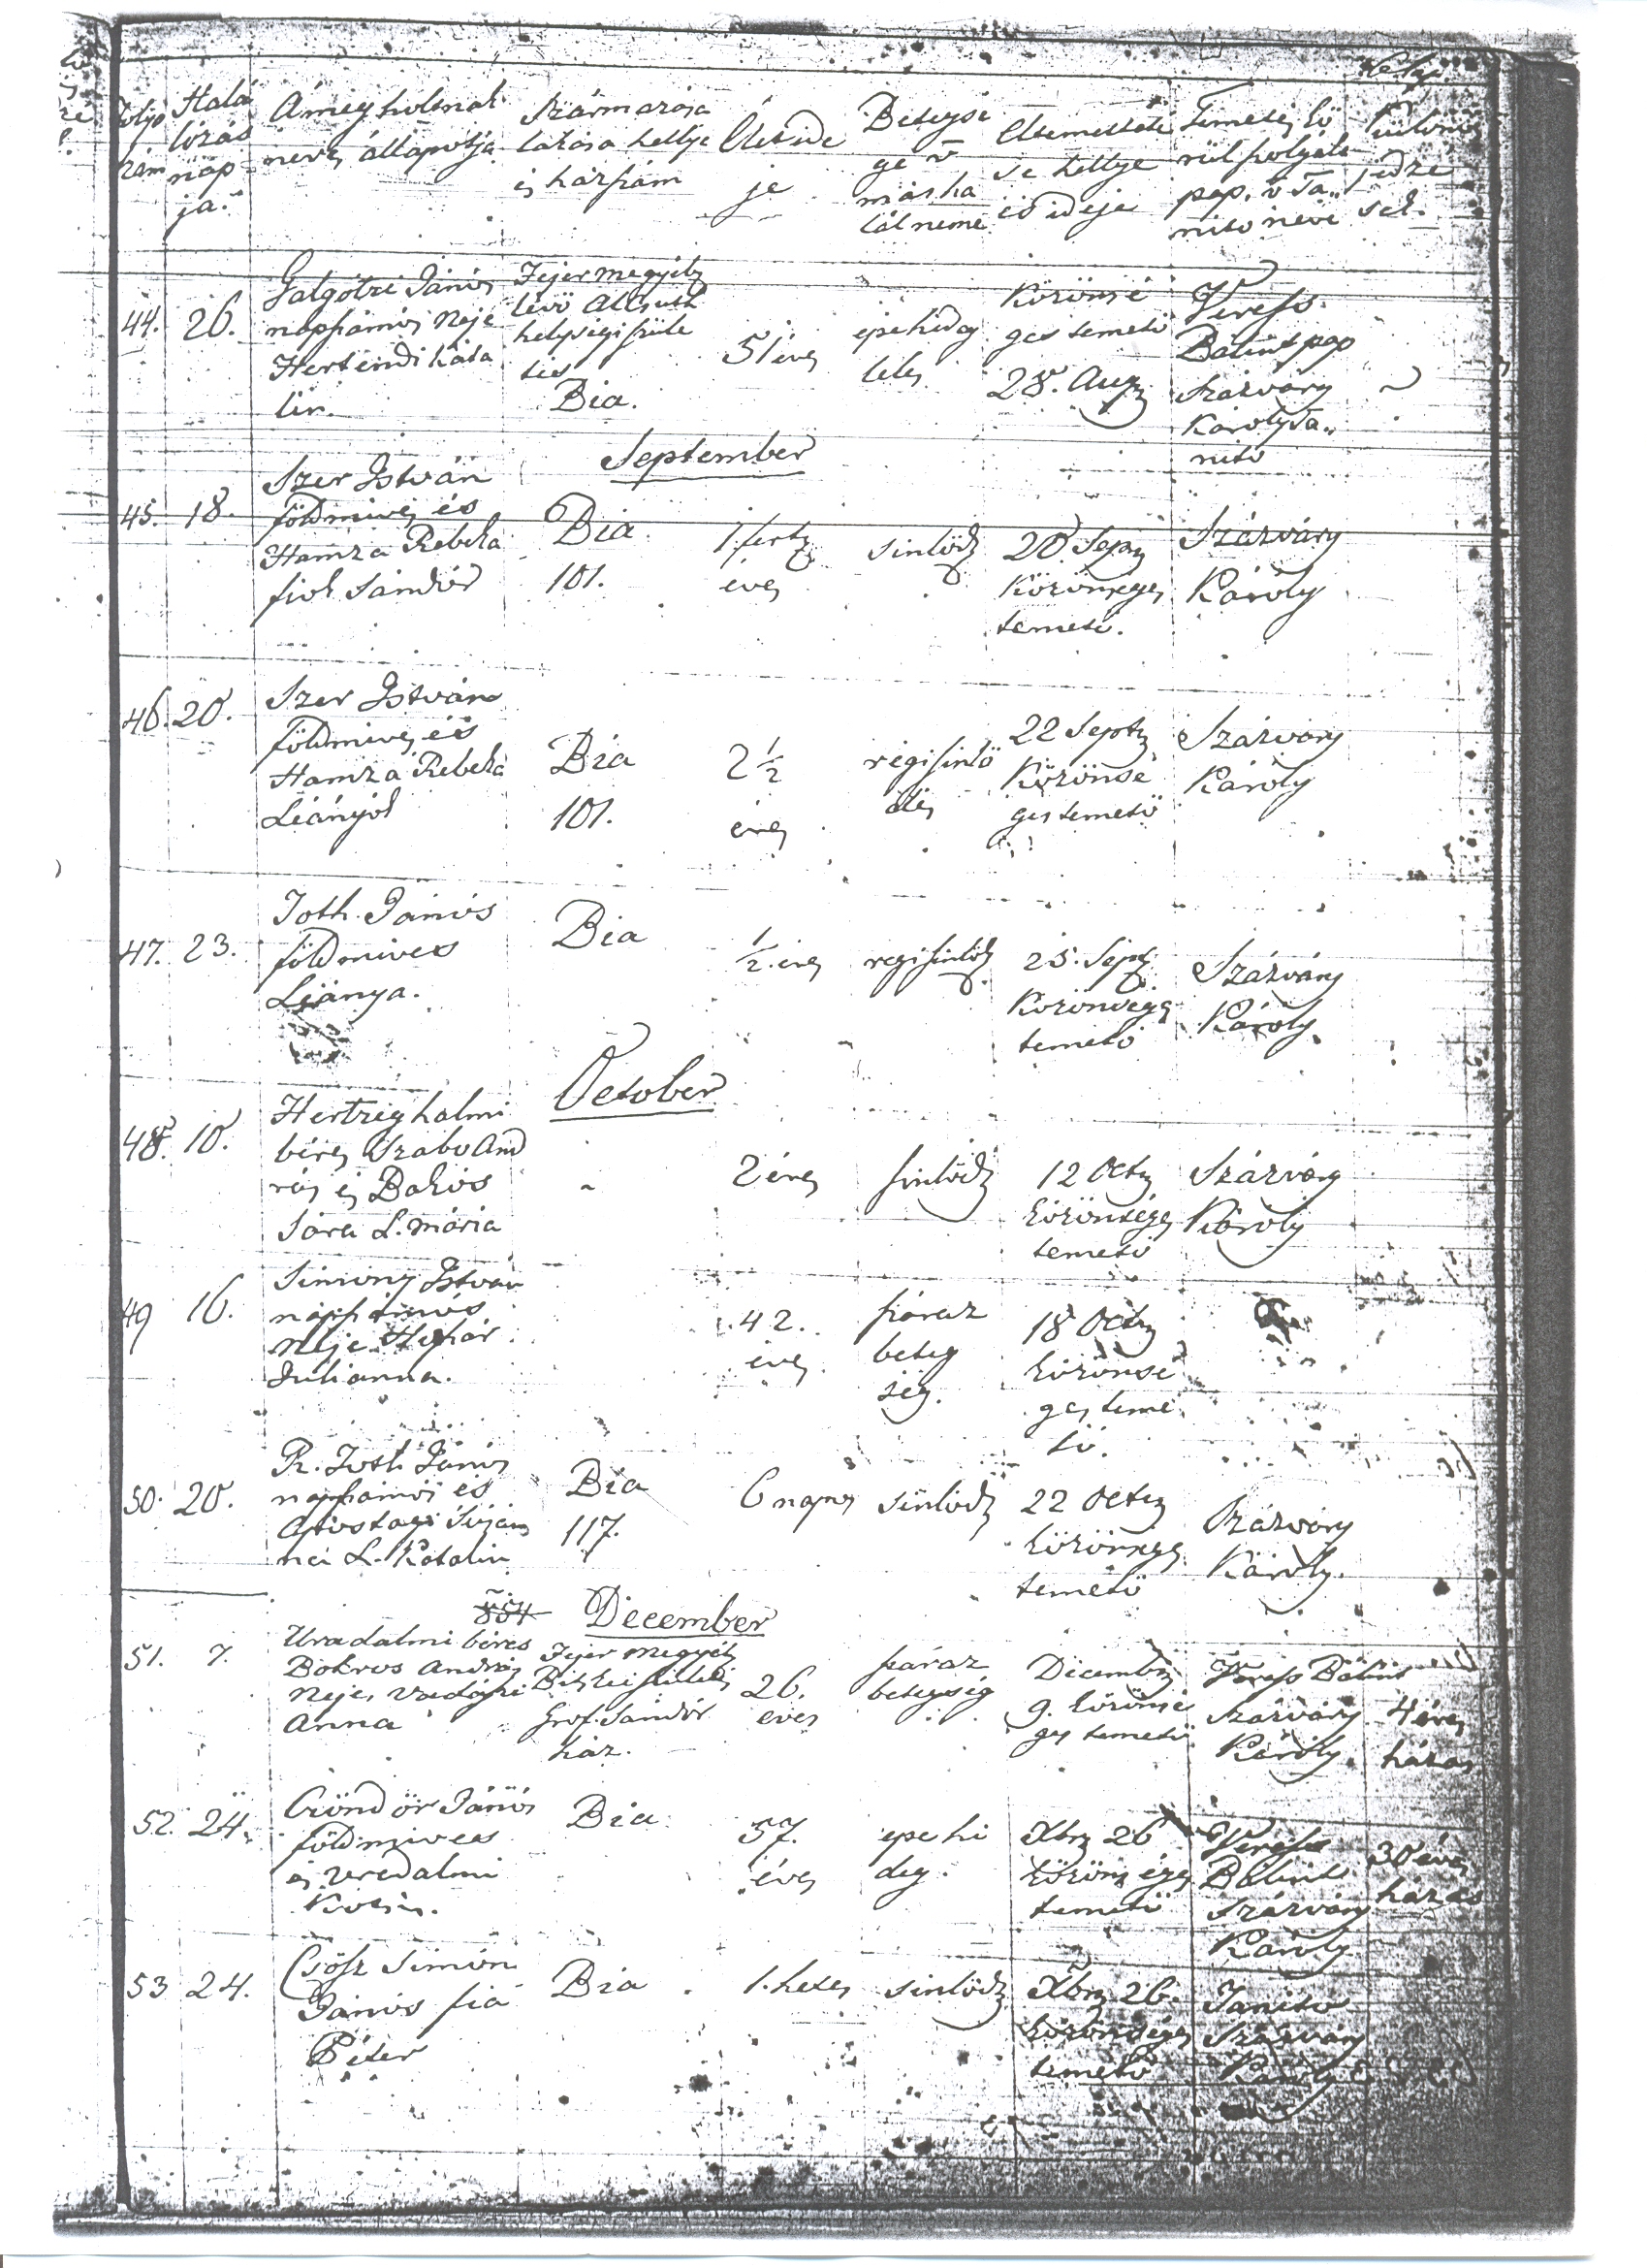 Folyó szám
Halá lozás nap ja.
A meg holtnak neve, állapotja
Származása lakása hellye és házszám
Élet ide je
Betegsé ge v. más ha lál neme
Eltemetteté se hellye és ideje
Temetés kö rül szolgáló pap, v. Ta nitó neve
Külonös jedzé sek.
44. 26.
Galgótzi János
napszámos neje
Hertendi Kata
lin.
Fejer megyéb
lévő Alcsuth
helységi szüle
tés
Bia.
51 éves
epehideg
lelés
Közönsé
ges temető
28. Aug
Veress
Bálint pap
Szárváry
Károly Ta
nitó
September
45. 18.
Szer István
földmives és
Hamza Rebeka
fiok Sándor
Bia
101.
1 fertj
éves
sinlődj
20 Sepy
Közönséges
temető.
Szárváry
Károly
46. 20.
Szer István
földmives és
Hamza Rebeka
Leányok
Bia
101.
2 1/2
éves
régi sinlő
dés
22 Septy
Közönsé
ges temető
Szárváry
Károly
47. 23.
Toth János
földmives
Leánya.
Bia
1/2 éves
regi sinlődj
25. Septy
Közönséges
temető
Szárváry
Károly.
October
48. 10.
Hertzeghalmi
béres Szabo And
rás és Bakos
Sára L. Mária
2 éves
sinlődj
12 Octy
közönséges
temető
Szárváry
Károly
49 16.
Simony István
napszámos
neje
Julianna.
42.
éves
száraz
beteg
ség.
18 Octy
közönsé
ges teme
tő.
50. 20.
R. Toth János
napszámos és
nai L. Katalin
Bia
117.
6 napos
sinlődj
22 Octy
közönséges
temető
Szárváry
Károly.
December
51. 7.
Uradalmi béres
Bokros András
neje,
Anna
Fejer megyéb
Bitskei születés
Grof Sándor
ház.
26.
éves
száraz
betegség
Decembr
9. közönsé
ges temető
Veress Bálint
Szárváry
Károly.
4 éves
házas
52. 24.
Czöndör János
földmives
és uradalmi
Kocsis.
Bia
57.
éves
epe hi
deg.
Xbry 26
közönséges
temető
Veress
Bálint
Szárváry
Károly
30 éves
házas
53 24.
Csősz Simon
János fia
Péter
Bia
1. hetes
sinlődj
Xbry 26.
közönséges
temető
Tanitó
Szárváry
Károly